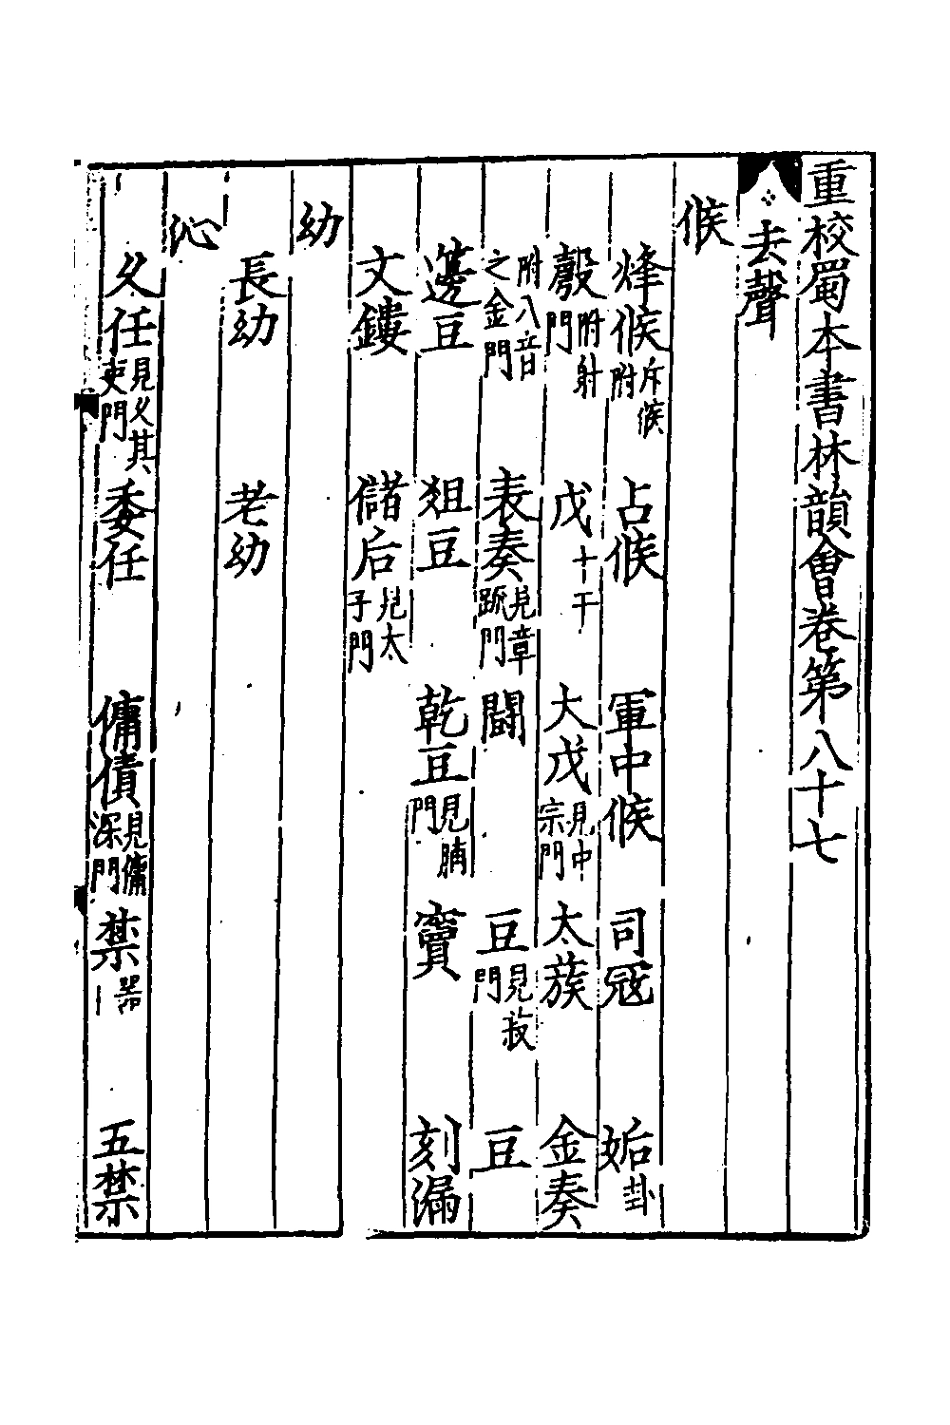 重校蜀本書林韻會卷第八十七
去聲
候
烽候斥候附　占候　軍中候　司寇　姤卦
彀附射門　戊十干　大戊見中宗門　太蔟　金奏
附八音之金門　表奏見章䟽門　鬭　豆見菽門　豆
籩豆　俎豆　乾豆見脯門　竇　刻漏
文鏤　儲后見太子門
幼
長幼　老幼
沁
久任見久其吏門　委任　傭賃見傭深門　禁器｜　五禁